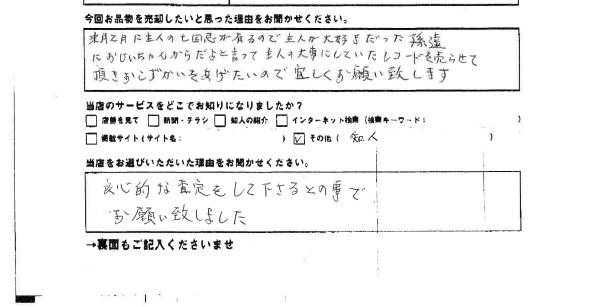 今回お品物を売却したいと思った理由をお聞かせください。
来月2月に主人の七回忌が有るので主人が大好きだった孫達
におじいちゃんからだよと言って主人の大事にしていたレコードを売らせて
頂きおこずかいをあげたいので宜しくお願い致します
当店のサービスをどこでお知りになりましたか？
□店舗を見て □新聞・チラシ □知人の紹介 □インターネット検索（検索キーワード： ）
□掲載サイト（サイト名： ） ☑その他（ 知人 ）
当店をお選びいただいた理由をお聞かせください。
良心的な査定をして下さるとの事で
お願い致しました
→裏面もご記入くださいませ